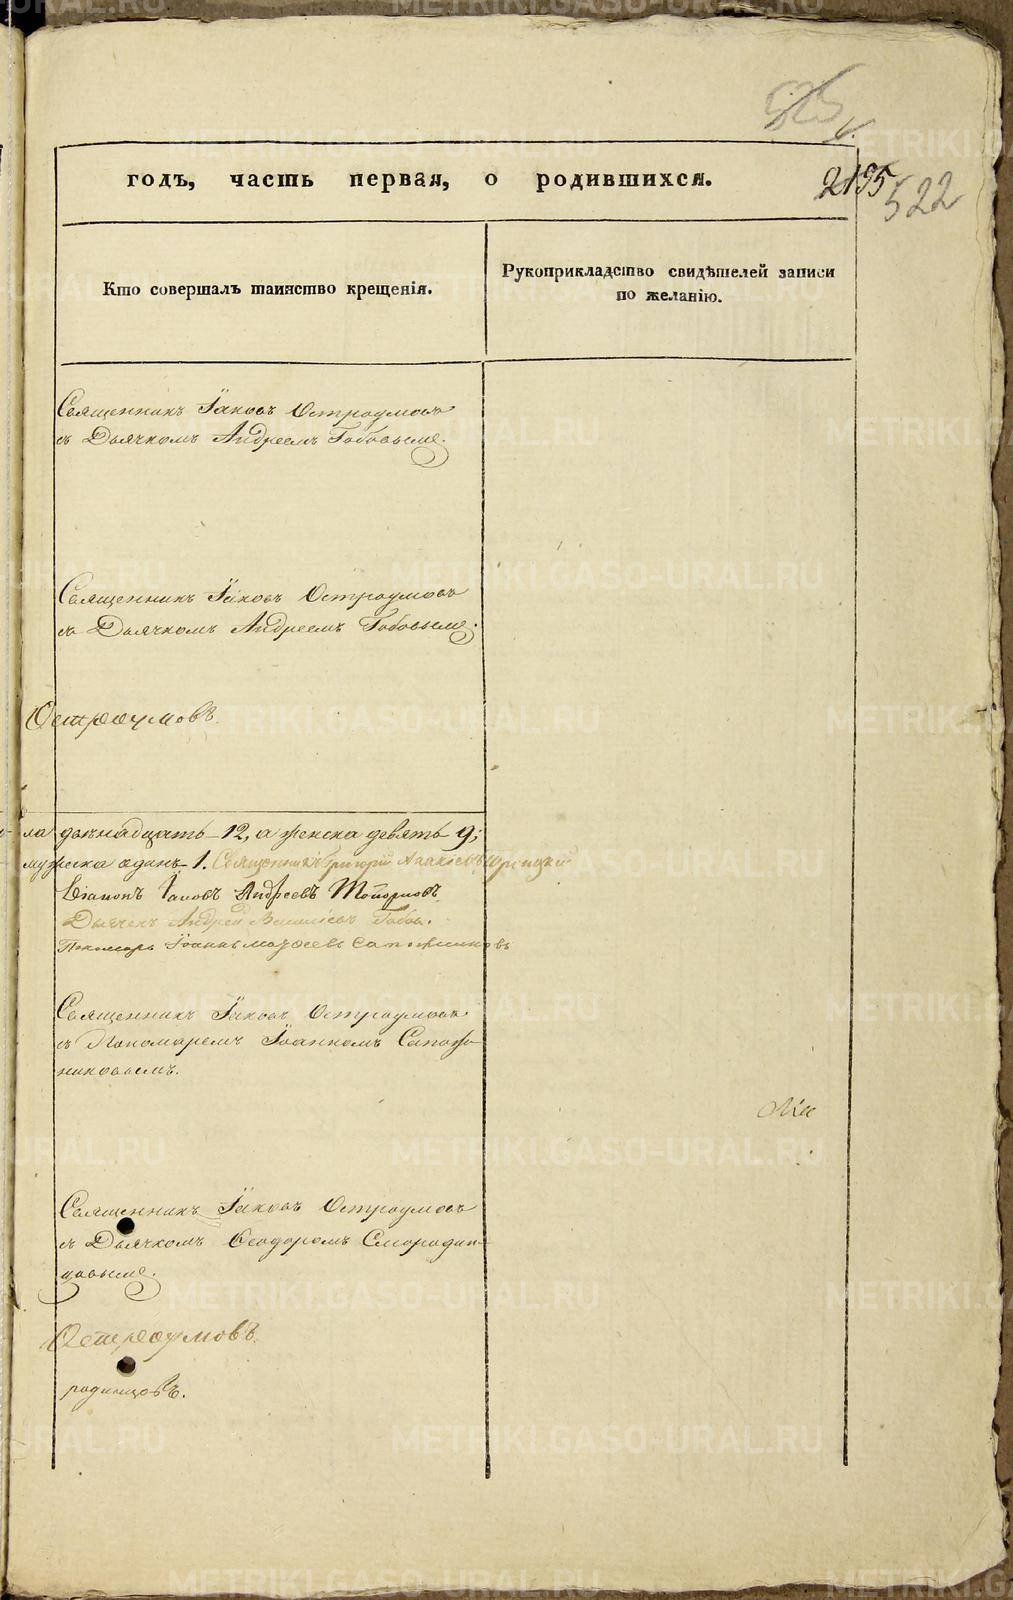 525
годъ, часть первая, о родившихся.
2195
522
Кто совершалъ таинство крещенія.
Рукоприкладство свидѣтелей записи
по желанію.
Священникъ Іаковъ Остроумовъ
съ Дьячкомъ Андреемъ Бобовымъ.
Священникъ Іаковъ Остроумовъ
съ Дьячкомъ Андреемъ Бобовымъ.
Остроумовъ.
ла двѣнадцать 12, а женска девять 9;
мужеска одинъ 1. Священникъ Григорій
Діаконъ Іаковъ Андреевъ Топорковъ
Дьячекъ Андрей
Пономарь Іоаннъ Матѳеевъ Сапожниковъ
Священникъ Іаковъ Остроумовъ
съ Пономаремъ Іоанномъ Сапож-
никовымъ.
Священникъ Іаковъ Остроумовъ
съ Дьячкомъ Ѳеодоромъ Смородин-
цовымъ.
Остроумовъ.
родинцовъ.
METRIKI.GASO-URAL.RU